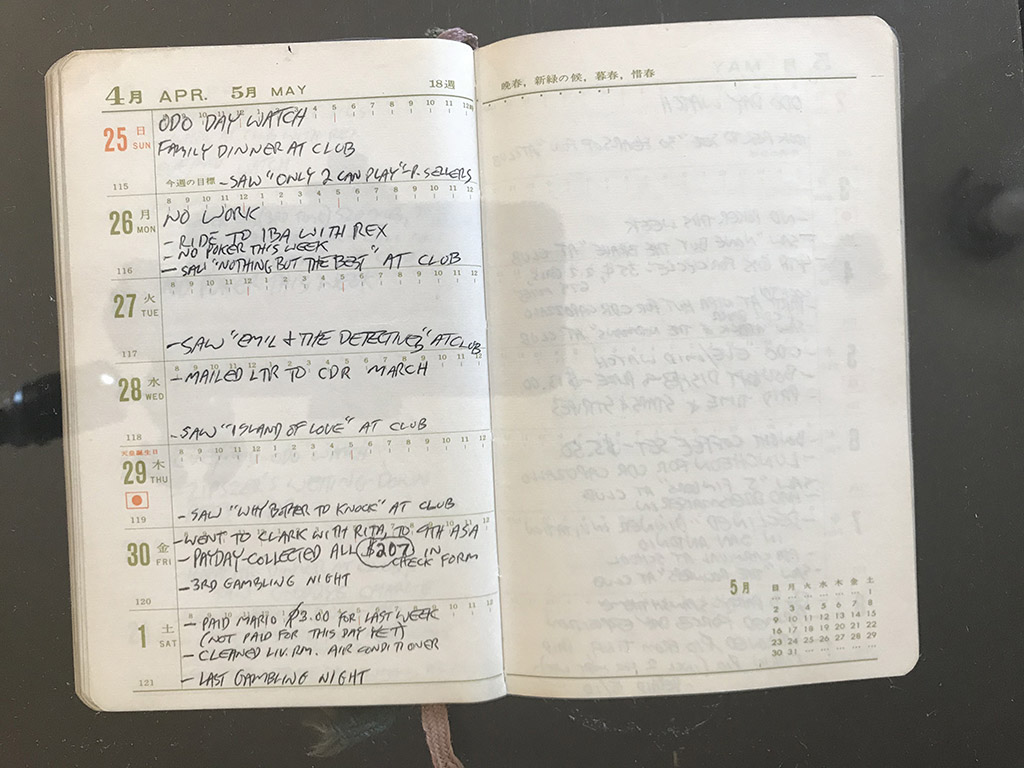 4月 APR. 5月 MAY 18週
25 日 SUN
ODO DAY WATCH
FAMILY DINNER AT CLUB
115 今週の目標 - SAW "ONLY 2 CAN PLAY" - P. SELLERS
26 月 MON
NO WORK
- RIDE TO IBA WITH REX
- NO POKER THIS WEEK
116 - SAW "NOTHING BUT THE BEST" AT CLUB
27 火 TUE
117 - SAW "EMIL & THE DETECTIVES" AT CLUB
28 水 WED
- MAILED LTR TO CDR MARCH
118 - SAW "ISLAND OF LOVE" AT CLUB
天皇誕生日
29 木 THU
119 - SAW "WHY BOTHER TO KNOCK" AT CLUB
30 金 FRI
- WENT TO CLARK WITH RITA, TO 9TH ASA
- PAYDAY-COLLECTED ALL $207 IN
CHECK FORM
- 3RD GAMBLING NIGHT
120
1 土 SAT
- PAID MARIO $3.00 FOR LAST WEEK
(NOT PAID FOR THIS DAY YET)
- CLEANED LIV. RM. AIR CONDITIONER
121 - LAST GAMBLING NIGHT
晩春，新緑の候，暮春，惜春
5月
日 月 火 水 木 金 土
... ... ... ... ... ... 1
2 3 4 5 6 7 8
9 10 11 12 13 14 15
16 17 18 19 20 21 22
23 24 25 26 27 28 29
30 31 ... ... ... ... ...